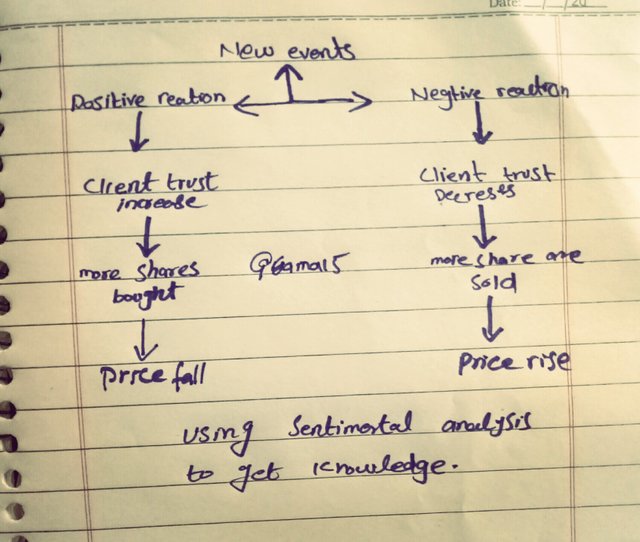 Date: __/__/20__
New events
Positive reation
Negtive reaction
Client trust
increase
Client trust
Decreses
more shares
bought
@gamal5
more share are
sold
Price fall
Price rise
using Sentimental analysis
to get knowledge.